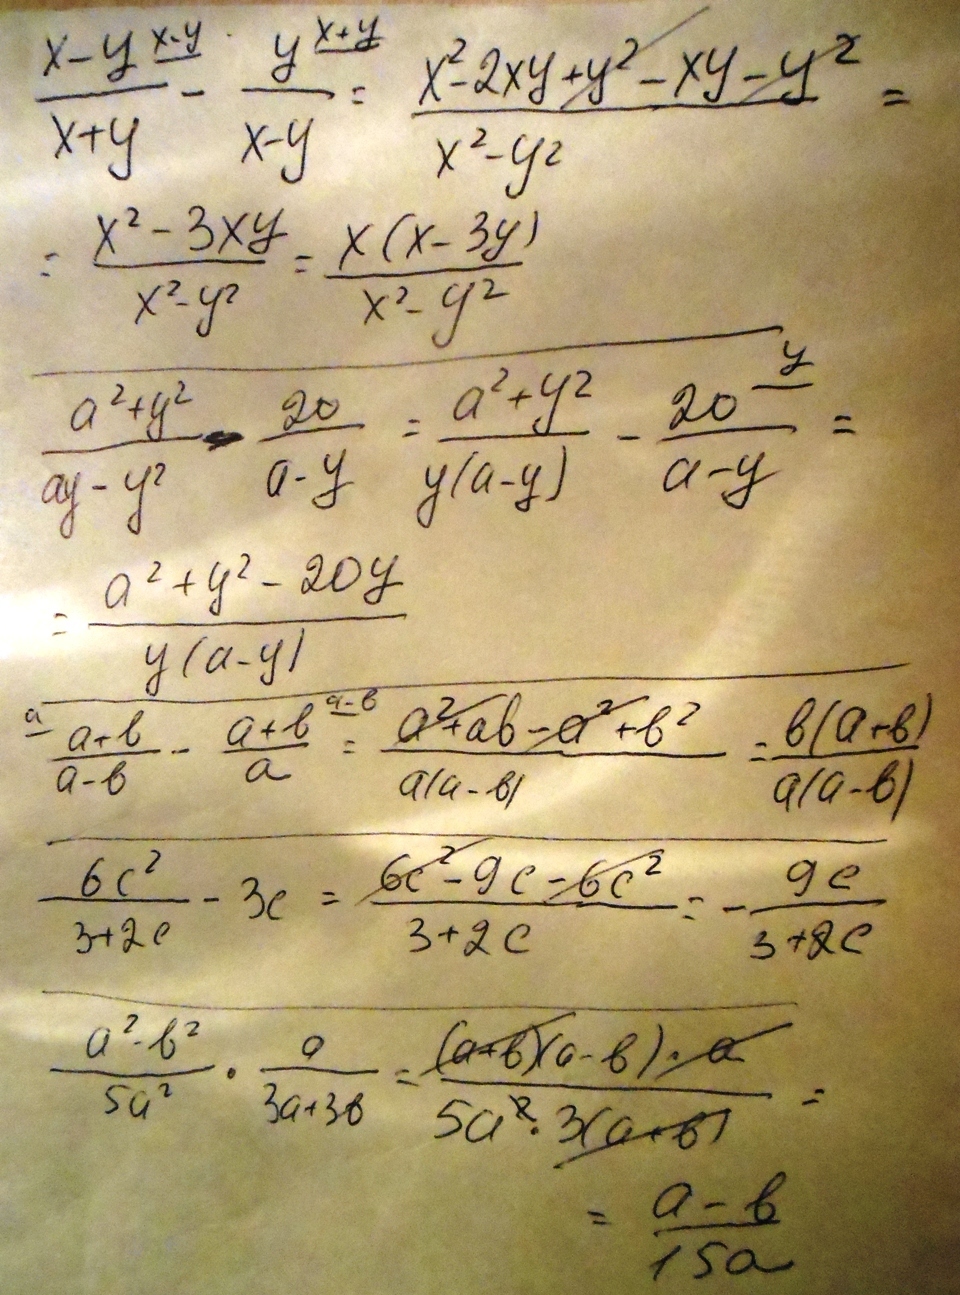 x-y x-y / x+y - y x+y / x-y = x²-2xy+y²-xy-y² / x²-y² =
= x²-3xy / x²-y² = x(x-3y) / x²-y²
a²+y² / ay-y² - 20 / a-y = a²+y² / y(a-y) - 20 y / a-y =
= a²+y²-20y / y(a-y)
a a+в / a-в - a+в a-в / a = a²+aв-a²+в² / a(a-в) = в(a+в) / a(a-в)
6c² / 3+2c - 3c = 6c²-9c-6c² / 3+2c = - 9c / 3+2c
a²-в² / 5a² · a / 3a+3в = (a+в)(a-в)·a / 5a²·3(a+в) =
= a-в / 15a